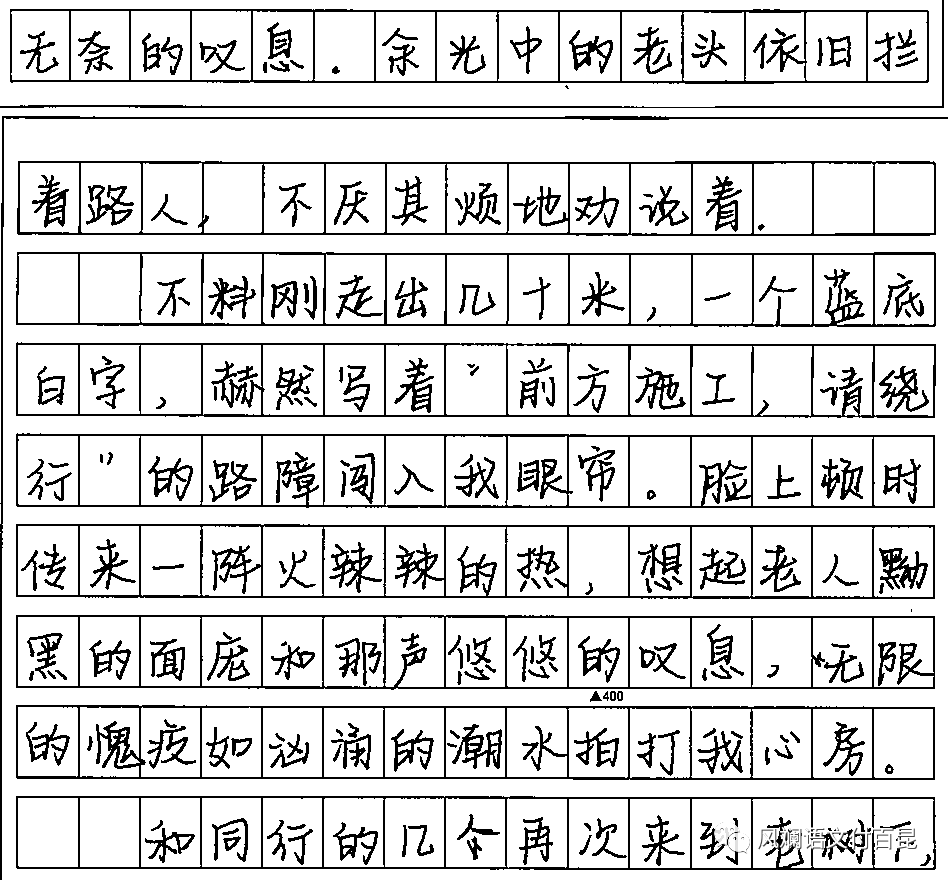 无奈的叹息.余光中的老头依旧拦
着路人,不厌其烦地劝说着.
不料刚走出几十米,一个蓝底
白字,赫然写着"前方施工,请绕
行"的路障闯入我眼帘。脸上顿时
传来一阵火辣辣的热,想起老人黝
黑的面庞和那声悠悠的叹息,无限
▲400
的愧疚如汹涌的潮水拍打我心房。
和同行的几个再次来到老树下,
风斓语文付百昆